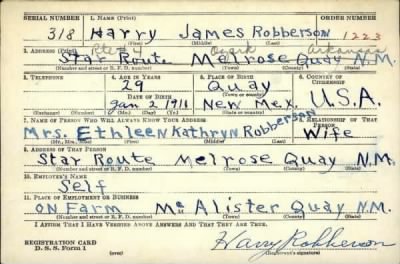 SERIAL NUMBER 1. NAME (Print) ORDER NUMBER
318 Harry James Robberson 1223
(First) (Middle) (Last)
Rte # 4 Ozark Arkansas
2. ADDRESS (Print)
Star Route Melrose Quay N.M.
(Number and street or R. F. D. number) (Town) (County) (State)
3. TELEPHONE 4. AGE IN YEARS 5. PLACE OF BIRTH 6. COUNTRY OF CITIZENSHIP
29 Quay
DATE OF BIRTH (Town or county)
Jan 2 1911 New Mex. U.S.A.
(Exchange) (Number) (Mo.) (Day) (Yr.) (State or country)
7. NAME OF PERSON WHO WILL ALWAYS KNOW YOUR ADDRESS 8. RELATIONSHIP OF THAT PERSON
Mrs. Ethleen Kathryn Robberson Wife
(Mr., Mrs., Miss) (First) (Middle) (Last)
9. ADDRESS OF THAT PERSON
Star Route Melrose Quay N.M.
(Number and street or R. F. D. number) (Town) (County) (State)
10. EMPLOYER'S NAME
Self
11. PLACE OF EMPLOYMENT OR BUSINESS
on Farm McAlister Quay N.M.
(Number and street or R. F. D. number) (Town) (County) (State)
I AFFIRM THAT I HAVE VERIFIED ABOVE ANSWERS AND THAT THEY ARE TRUE.
REGISTRATION CARD
D. S. S. Form 1 (over) Harry Robberson
(Registrant's signature)